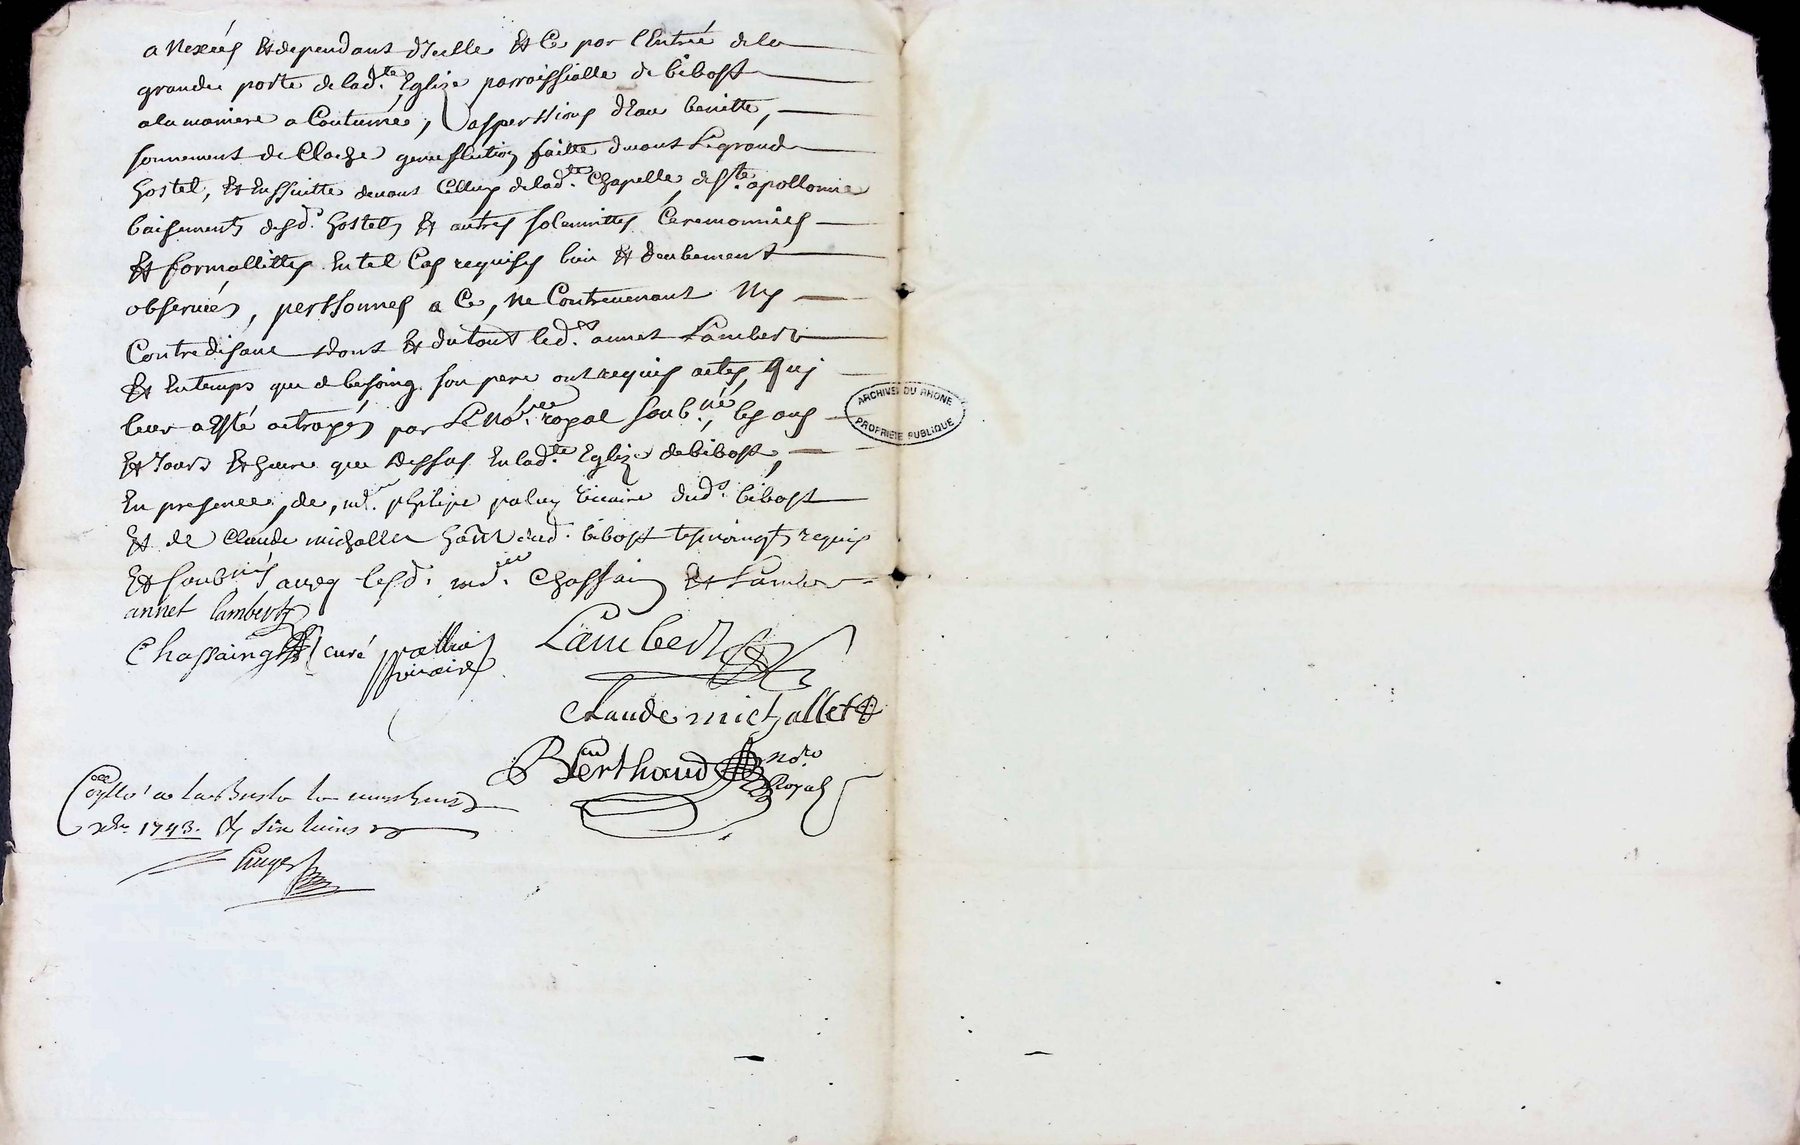 annexés et dependants d'Icelle et Ce par l'Entrée de la
grande porte de lad.te Eglise parroissialle de bibost
a la maniere a Coutumé, aspertions d'Eau benitte,
sonnement de Cloche genuflection faitte devant Le grand
hostel, et Ensuitte devant Celluy de lad.te Chapelle de s.te apollonie
baisements desd. hostels et autres solemnittes Ceremonnies
et formallittes En tel Cas requises bien et deubement
observées, perssonnes a Ce, ne Contrevenant ny
Contredisant dont et du tout led.t annet Lambert
et En temps que de besoing son pere ont requis actes, quj
leur a Esté octroyés par Le no.re royal soub.né, les ans
et Jours et heure que dessus En lad.te Eglize de bibost,
En presence, de, m.r philipe vicaire dud. bibost
et de Claude michallet dud. bibost tesmoingts requis
et soubnés aveq lesd. Chassaing et Lambert
annet lambert
Chassaing curé vicaire
Lambert
Claude michallet
Berthaud no.re Royal
a la
1743.